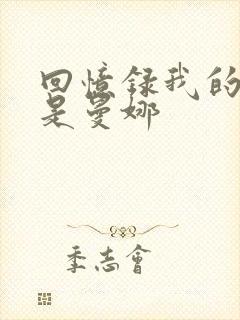 回憶録我的
是曼娜
季志會